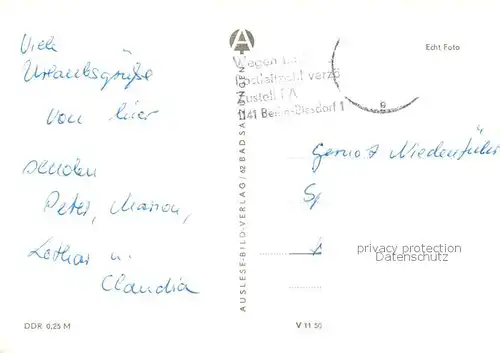 Viele
Urlaubsgrüße
von hier
senden
Peter, Marion,
Lothar u.
Claudia
AUSLESE-BILD-VERLAG/62 BAD SALZUNGEN
Wegen
verzö
Zustell PA
1141 Berlin-Biesdorf 1
Echt Foto
Gernot
Sp
privacy protection
Datenschutz
DDR 0,25 M
V 11 50